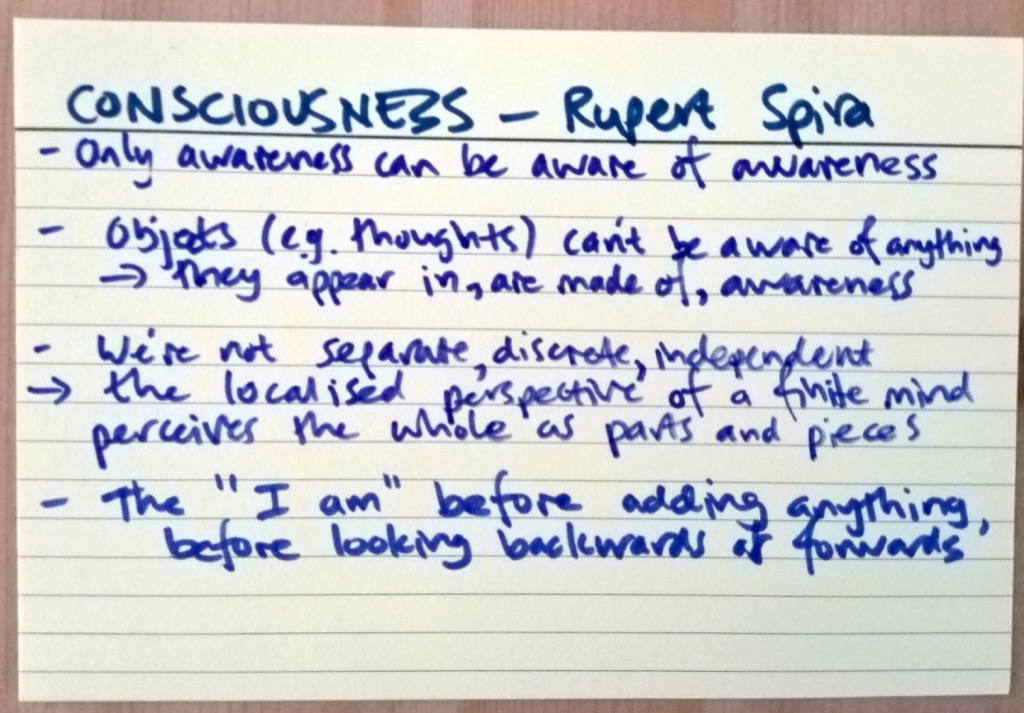 CONSCIOUSNESS - Rupert Spira
- Only awareness can be aware of awareness
- Objects (e.g. thoughts) can't be aware of anything
→ They appear in, are made of, awareness
- We're not separate, discrete, independent
→ the localised perspective of a finite mind
perceives the whole as parts and pieces
- The "I am" before adding anything,
before looking backwards or forwards